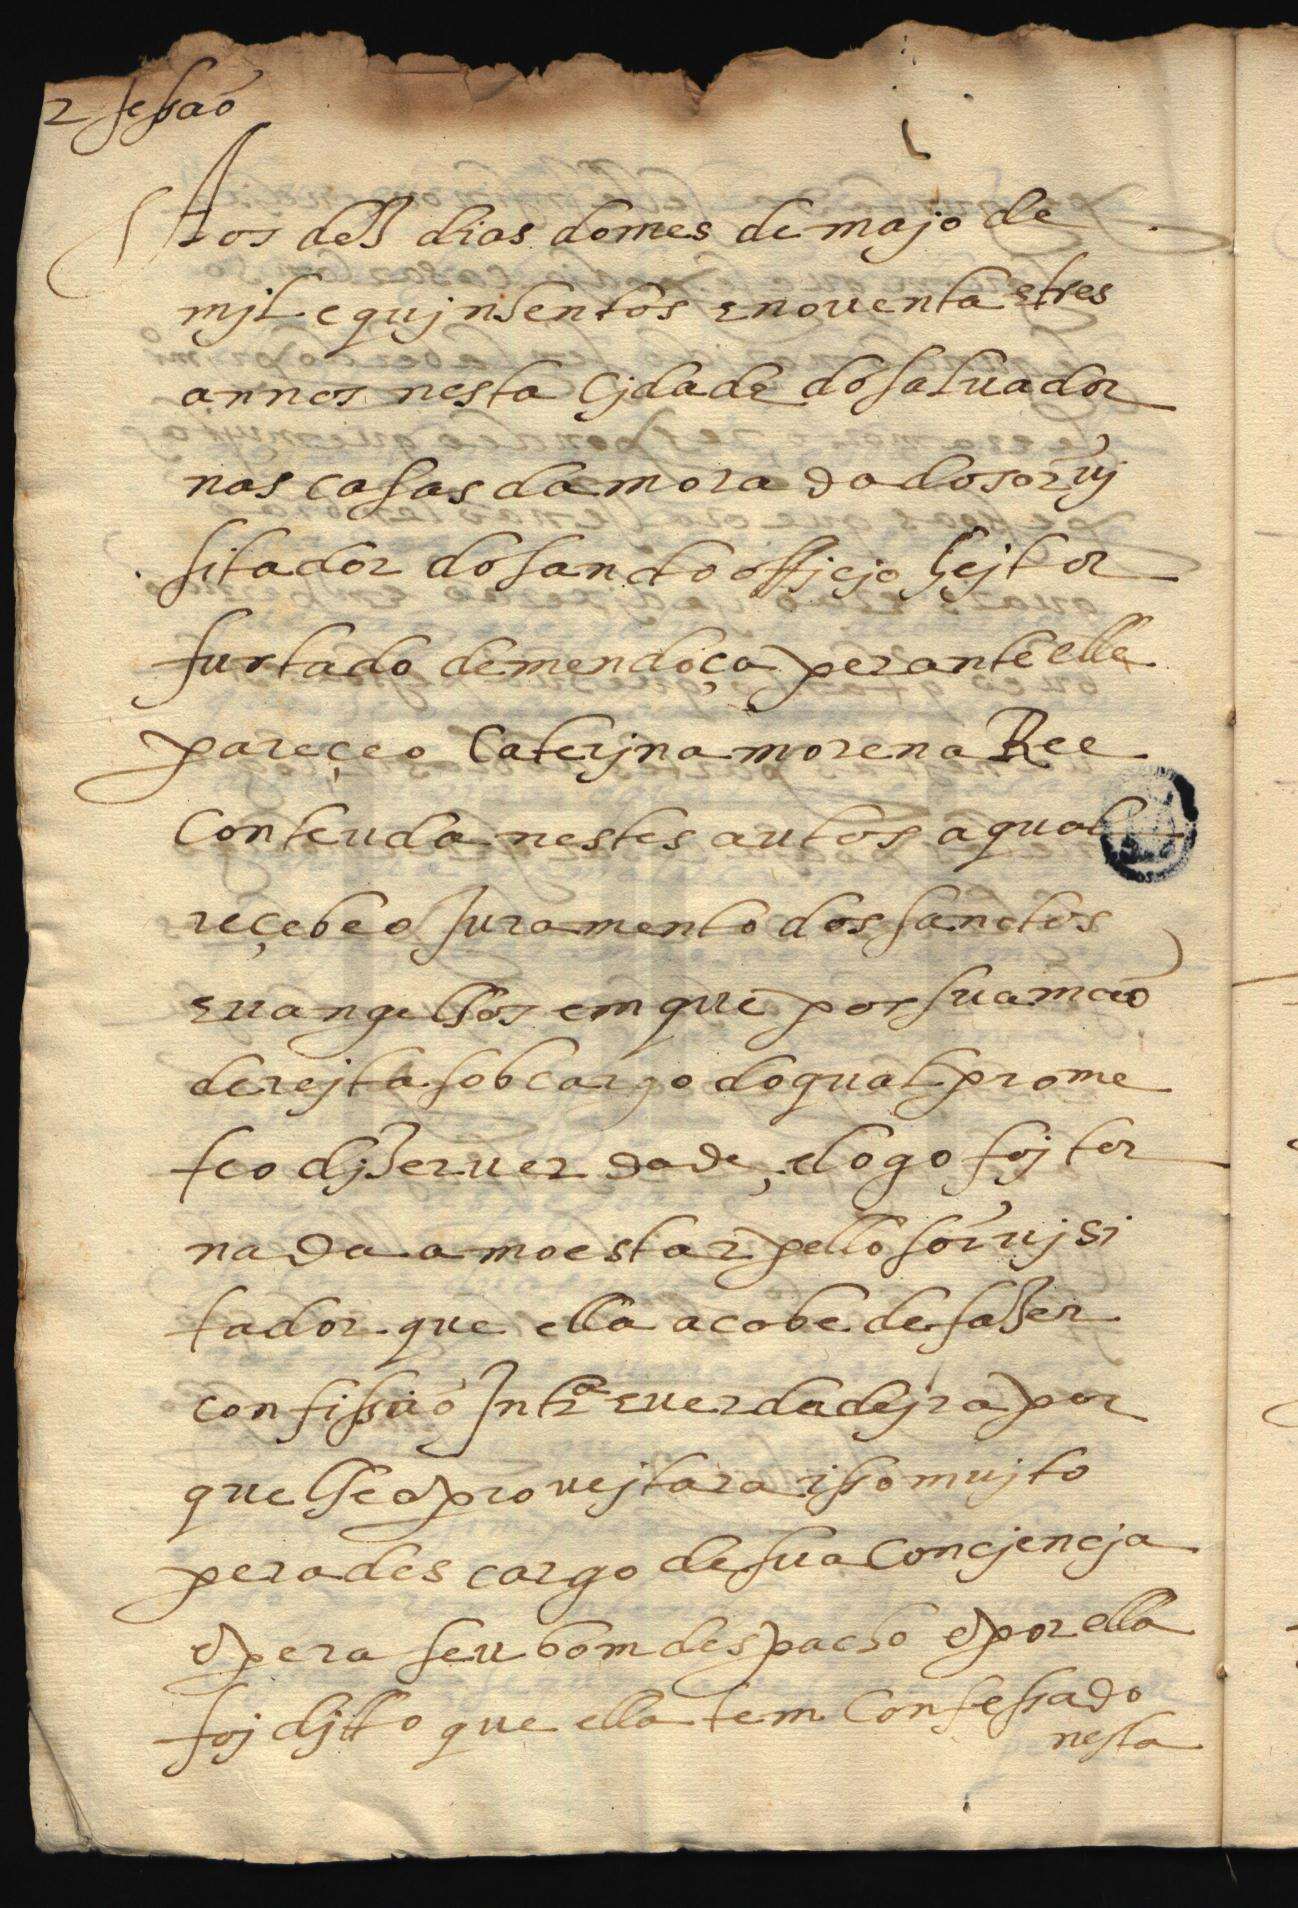 2 sessão
Aos des dias do mes de majo de
mjl e qujnsentos e noventa e tres
annos nesta Cjdade do saluador
nas casas da morada do sor vj
sitador do sancto officjo hejtor
furtado de mendoça perante elle
pareçeo Caterjna morena Ree
Conteuda nestes autos a qual
reçebeo Juramento dos sanctos
euangelhos em que pos sua mão
derejta sob cargo do qual prome
teo djzer verdade, e logo foj tor
nada a moestar pello sor vjsi
tador que ella acabe de fazer
confissão Intra e verdadejra por
que lhe aprovejtara isso mujto
pera descargo de sua Concjencja
e pera seu bom despacho e por ella
foj djtto que ella tem Confessado
nesta